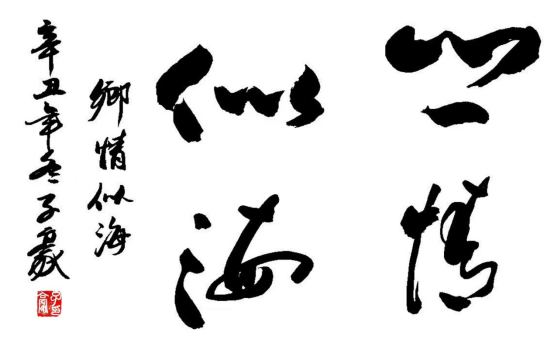 鄉情
似海
鄉情似海
辛丑年冬子豪